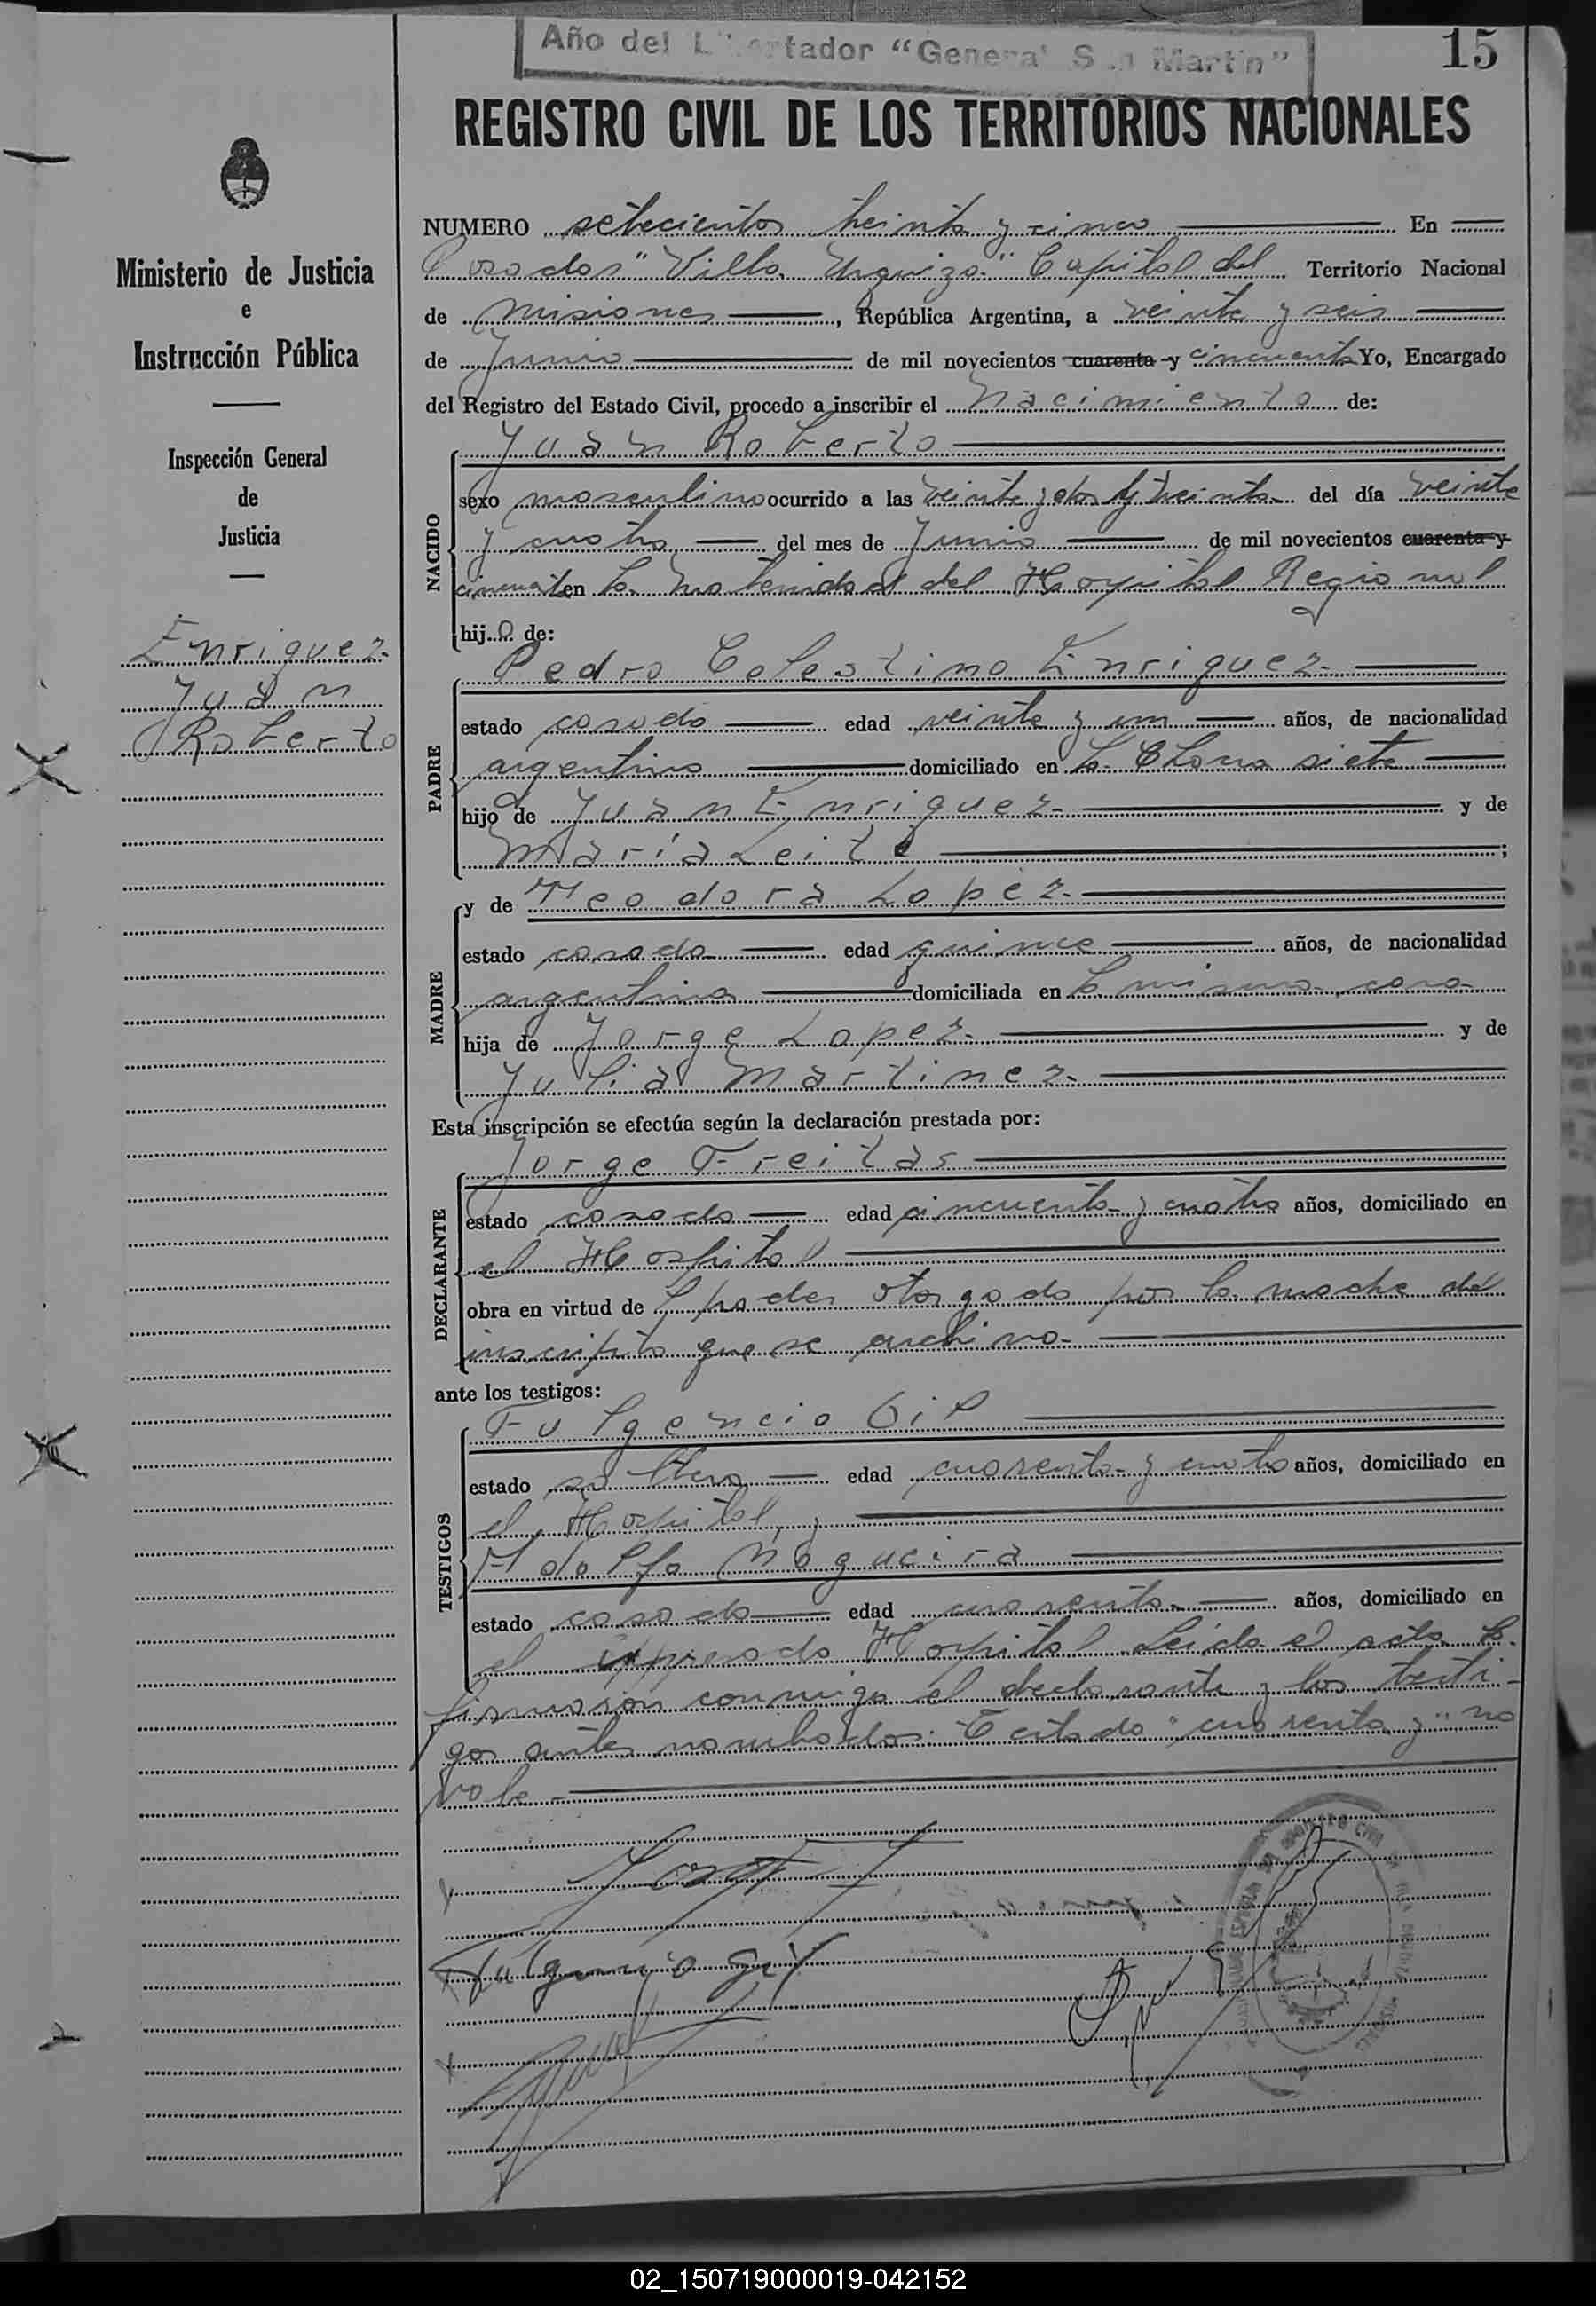 Año del Libertador "General San Martín"
15
REGISTRO CIVIL DE LOS TERRITORIOS NACIONALES
Ministerio de Justicia
e
Instrucción Pública
Inspección General
de
Justicia
Enriquez
Juan
Roberto
NUMERO setecientos treinta y cinco En
Posadas "Villa Urquiza" Capital del Territorio Nacional
de Misiones, República Argentina, a veinte y seis
de Junio de mil novecientos cuarenta y cincuenta Yo, Encargado
del Registro del Estado Civil, procedo a inscribir el Nacimiento de:
NACIDO
Juan Roberto
sexo masculino ocurrido a las veinte y dos y treinta del día veinte
y cuatro del mes de Junio de mil novecientos cuarenta y
cincuenta en la Maternidad del Hospital Regional
hijo de:
PADRE
Pedro Celestino Enriquez
estado casado edad veinte y un años, de nacionalidad
argentino domiciliado en la Chacra siete
hijo de Juan Enriquez y de
María Leite;
MADRE
y de Teodora Lopez
estado casada edad quince años, de nacionalidad
argentina domiciliada en la misma casa
hija de Jorge Lopez y de
Julia Martinez
Esta inscripción se efectúa según la declaración prestada por:
DECLARANTE
Jorge Freitas
estado casado edad cincuenta y cuatro años, domiciliado en
el Hospital
obra en virtud de poder otorgado por la madre del
inscripto que se archiva.
ante los testigos:
TESTIGOS
Fulgencio Gil
estado soltero edad cuarenta y cuatro años, domiciliado en
el Hospital, y
Adolfo Nogueira
estado casado edad cuarenta años, domiciliado en
el expresado Hospital. Leida el acta la
firmaron conmigo el declarante y los testi-
gos antes nombrados. Testado "cuarenta y" no
vale.
Fulgencio Gil
02_150719000019-042152